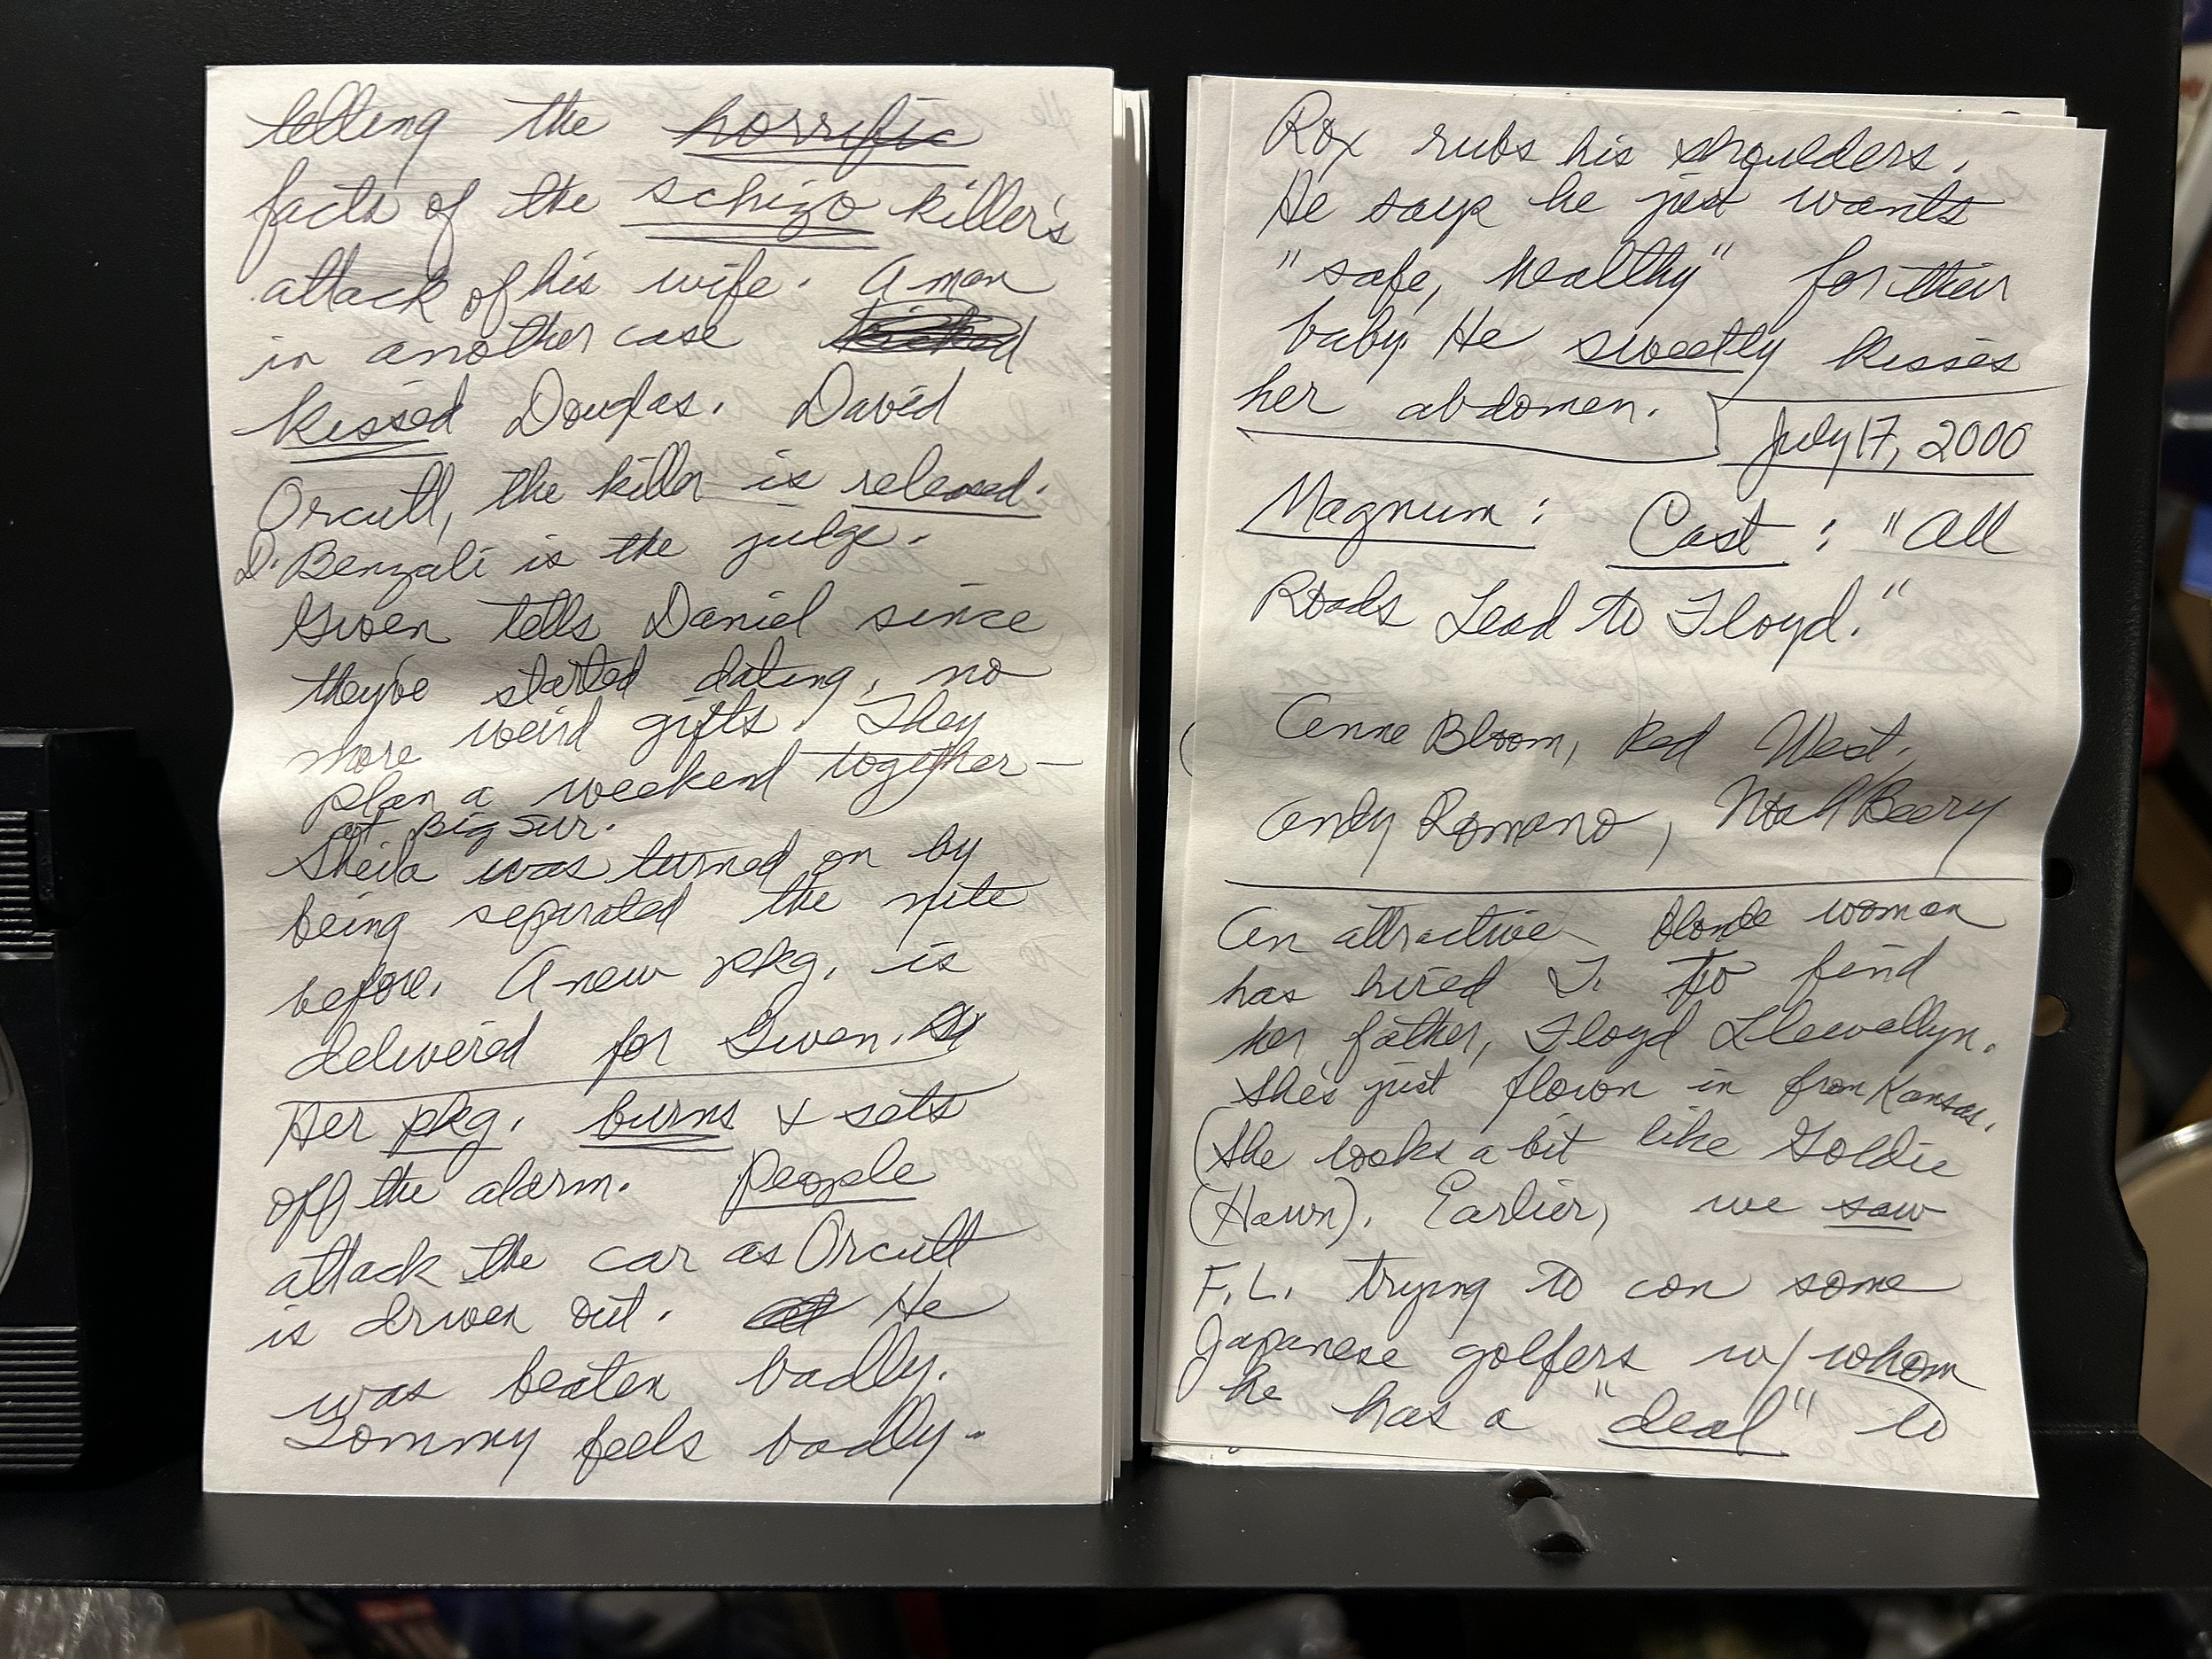 telling the horrific
facts of the schizo killer's
attack of his wife. A man
in another case
kissed Douglas. David
Orcutt, the killer is released.
D. Benzali is the judge.
Gwen tells Daniel since
they've started dating, no
more weird gifts. They
plan a weekend together—
at Big Sur.
Sheila was turned on by
being separated the nite
before. A new pkg. is
delivered for Gwen.
Her pkg. burns & sets
off the alarm. People
attack the car as Orcutt
is driven out. He
was beaten badly.
Tommy feels badly.
Rox rubs his shoulders.
He says he just wants
"safe, healthy" for their
baby. He sweetly kisses
her abdomen.
July 17, 2000
Magnum: Cast: "All
Roads Lead to Floyd."
Anne Bloom, Red West,
Andy Romano, Noah Beery
An attractive blonde woman
has hired T. to find
her father, Floyd Llewellyn.
She's just flown in from Kansas.
(She looks a bit like Goldie
(Hawn). Earlier, we saw
F.L. trying to con some
Japanese golfers w/ whom
he has a "deal" to